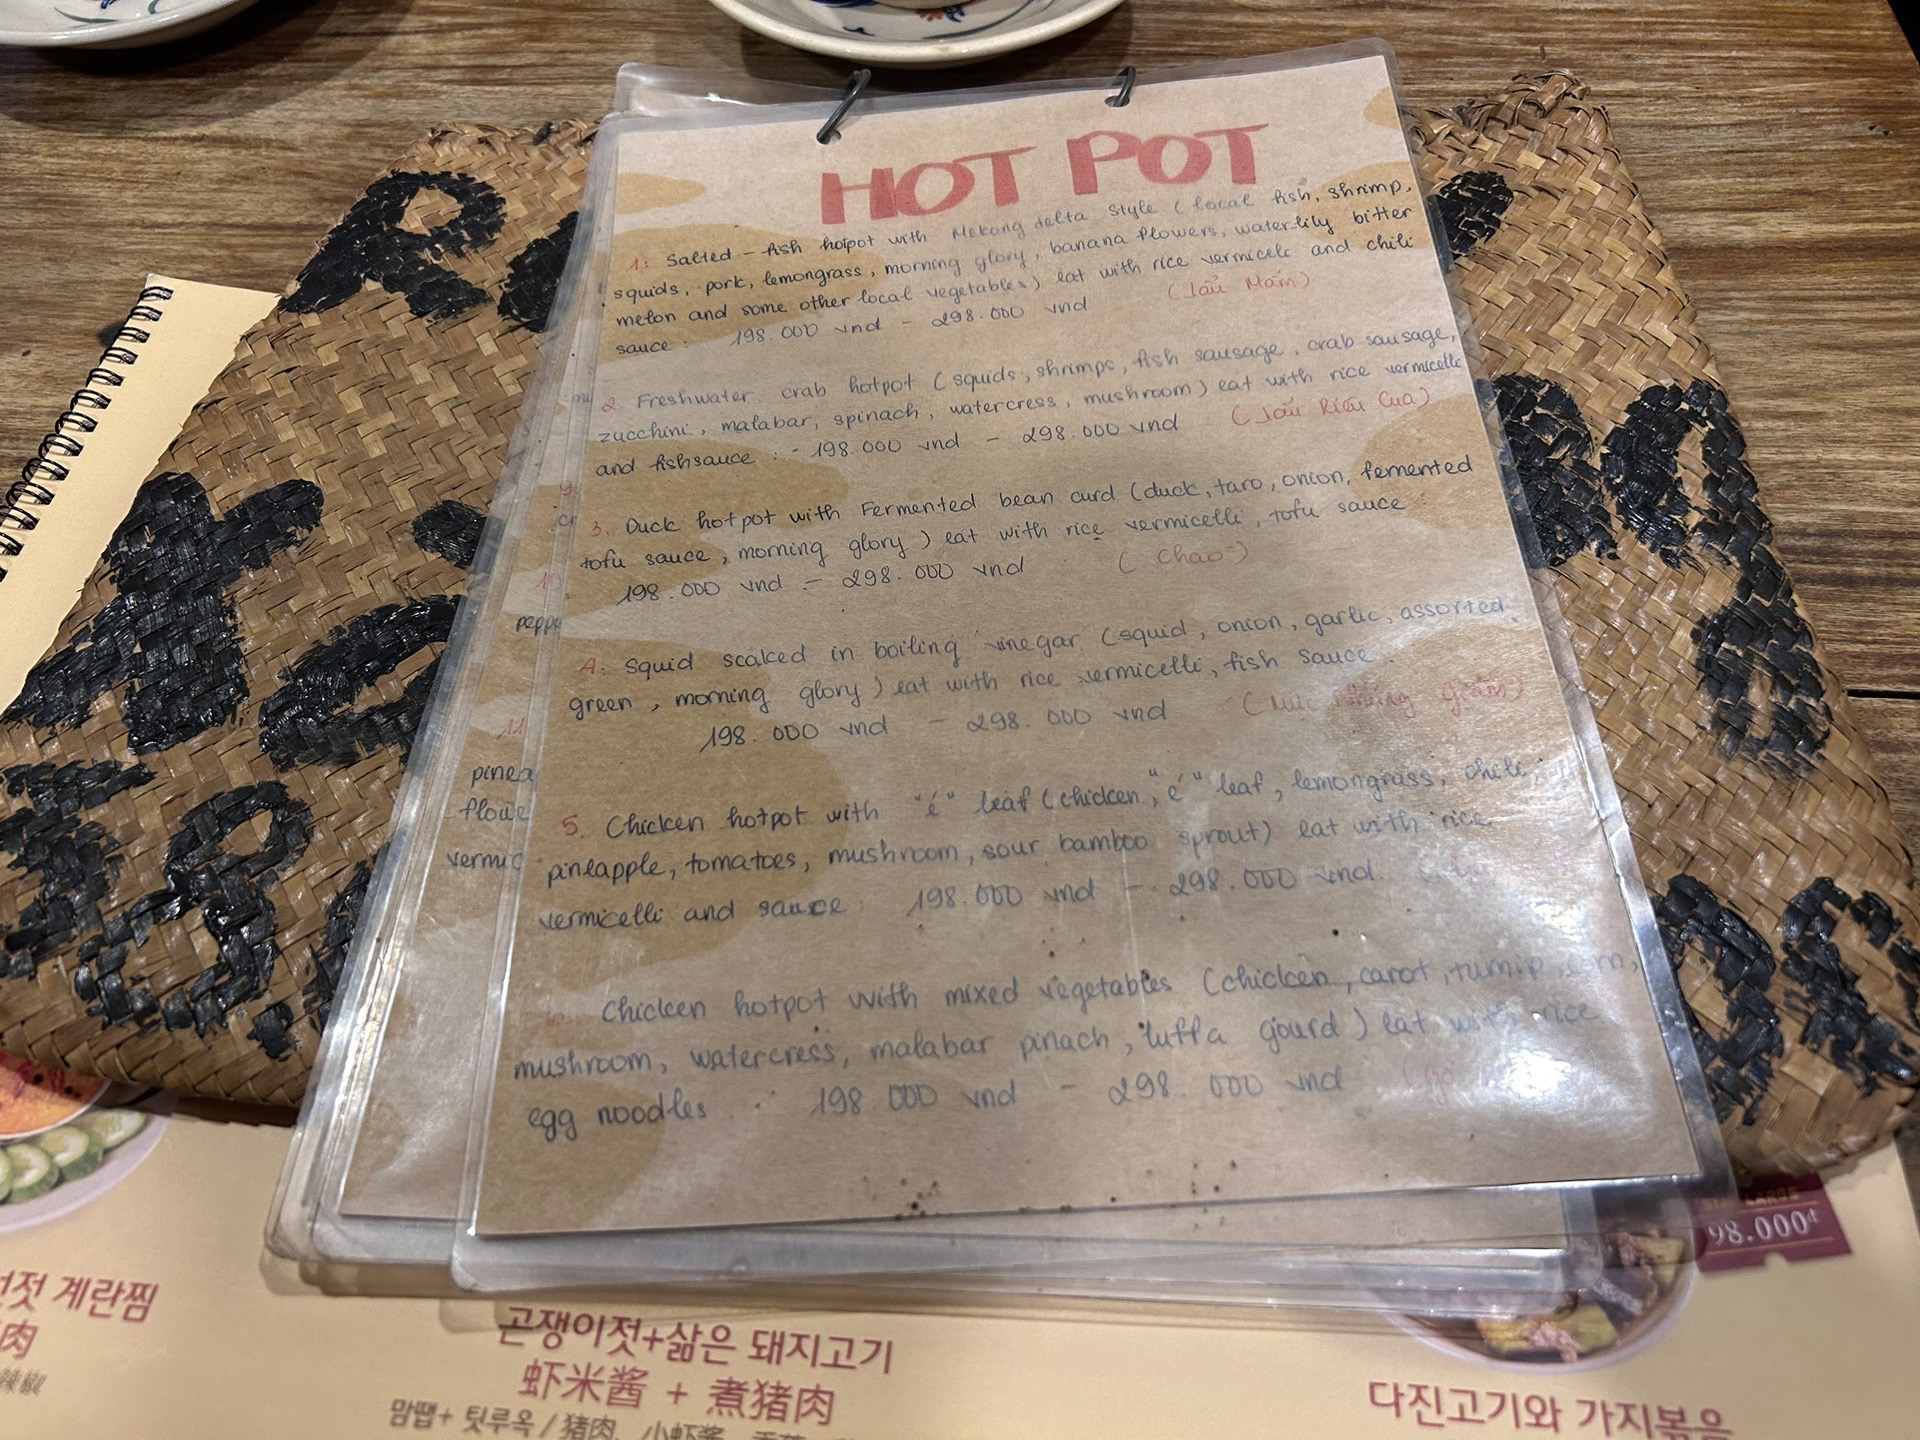 HOT POT
1: Salted - fish hotpot with Mekong delta style (local fish, shrimp,
squids, pork, lemongrass, morning glory, banana flowers, waterlily bitter
melon and some other local vegetables) eat with rice vermiceli and chili
sauce : 198.000 vnd - 298.000 vnd (Lẩu Mắm)
2. Freshwater crab hotpot (squids, shrimps, fish sausage, crab sausage,
zucchini, malabar, spinach, watercress, mushroom) eat with rice vermicelli
and fishsauce : - 198.000 vnd - 298.000 vnd (Lẩu Riêu Cua)
3. Duck hotpot with Fermented bean curd (duck, taro, onion, femented
tofu sauce, morning glory) eat with rice vermicelli, tofu sauce :
198.000 vnd - 298.000 vnd (Chao)
4: Squid scalced in boiling vinegar (squid, onion, garlic, assorted
green, morning glory) eat with rice vermicelli, fish sauce :
198.000 vnd - 298.000 vnd (Mực Nhúng Giấm)
5. Chicken hotpot with "é" leaf (chicken, "é" leaf, lemongrass, chili,
pineapple, tomatoes, mushroom, sour bamboo sprout) eat with rice
vermicelli and sauce : 198.000 vnd - 298.000 vnd.
Chicken hotpot with mixed vegetables (chicken, carot, turnip, corn,
mushroom, watercress, malabar pinach, luffa gourd) eat with rice
egg noodles : 198.000 vnd - 298.000 vnd
10
pepp
11
pinea
flowe
vermic
LARGE
98.000đ
계란찜
肉
辣椒
곤쟁이젓+삶은 돼지고기
虾米酱 + 煮猪肉
맘땝+ 팃루옥 / 猪肉, 小虾酱
다진고기와 가지볶음